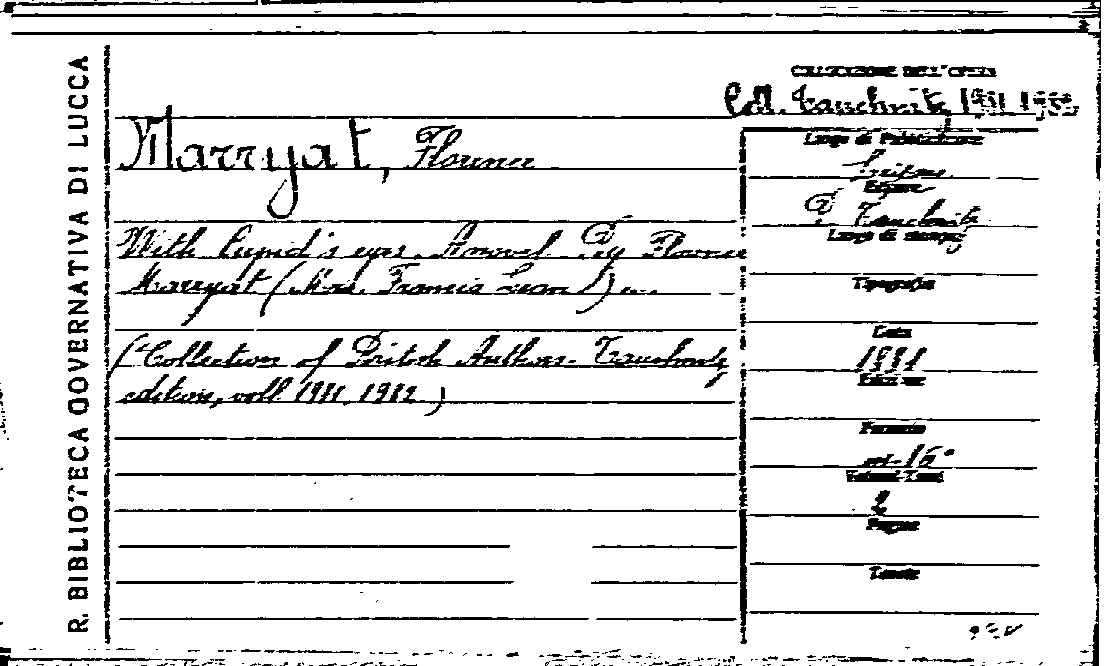 R. BIBLIOTECA GOVERNATIVA DI LUCCA
COLLOCAZIONE DELL'OPERA
Coll. Tauchnitz 1911, 1912
Marryat, Florence
With Cupid's eyes. A novel. By Florence
Marryat (Mrs. Francis Lean)
(Collection of British Authors. Tauchnitz
edition, voll. 1911, 1912)
Luogo di Pubblicazione
Leipzig
Editore
B. Tauchnitz
Luogo di stampa
Tipografia
Data
1881
Edizione
Formato
in-16°
Volumi-Tomi
2
Pagine
Tavole